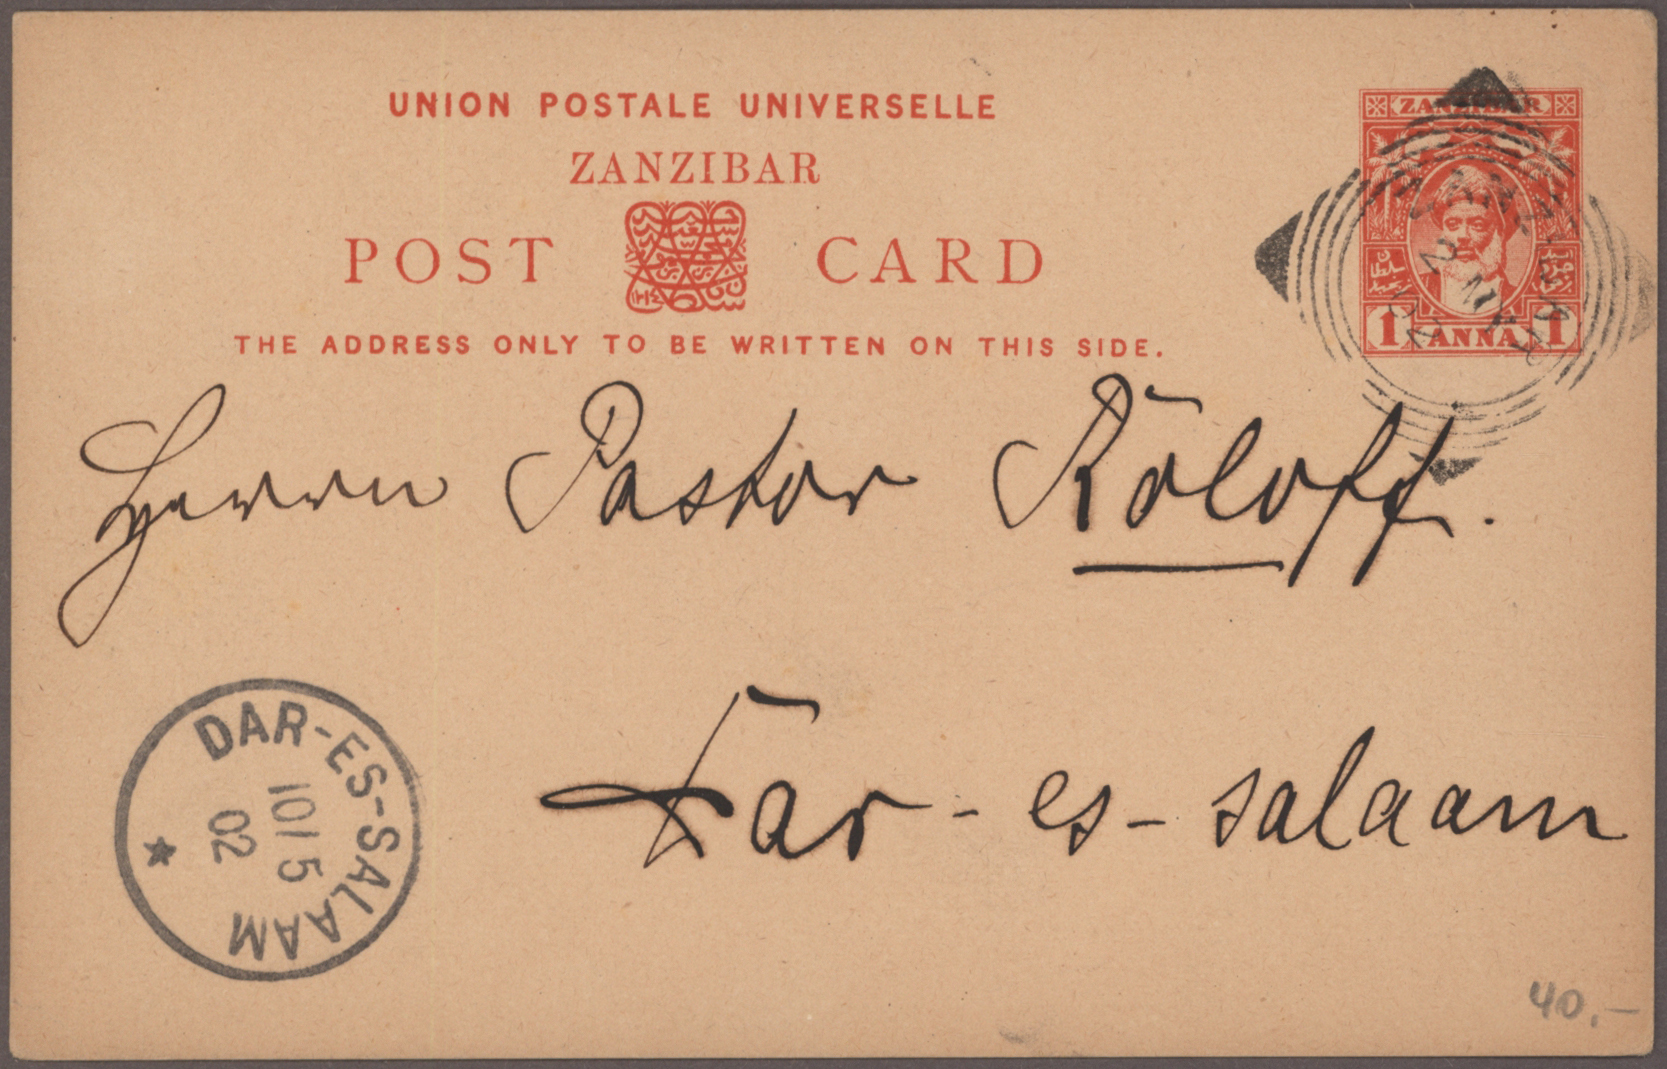 UNION POSTALE UNIVERSELLE
ZANZIBAR
POST CARD
THE ADDRESS ONLY TO BE WRITTEN ON THIS SIDE.
ZANZIBAR
1 ANNA 1
ZANZIBAR
MY
02
Herrn Pastor Röloff.
Dar-es-salaam
DAR-ES-SALAAM
10/5
02
40.-